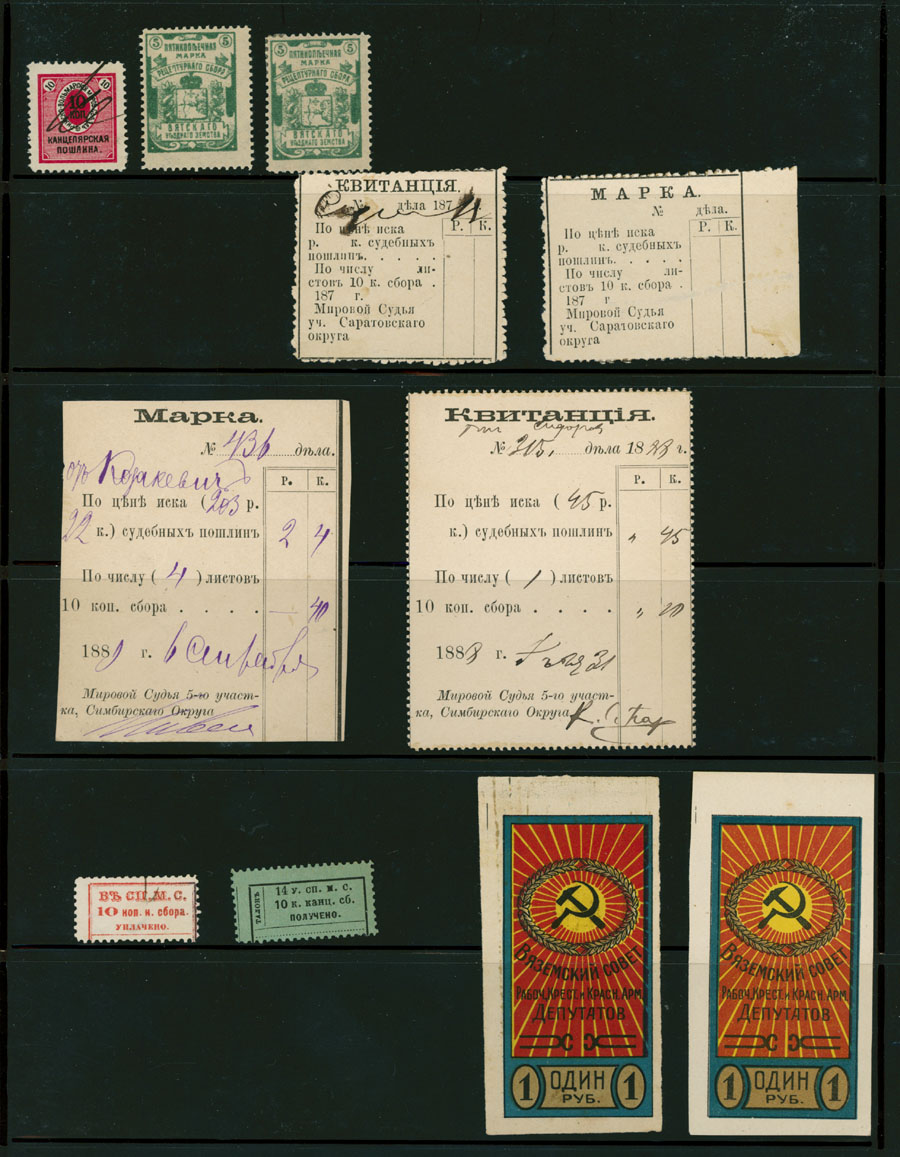 10 10
10
КОП.
КАНЦЕЛЯРСКАЯ
ПОШЛИНА.
5 5
ПЯТИКОПѢЕЧНАЯ
МАРКА
РЕЦЕПТУРНАГО СБОРА
ВЯТСКАГО
УѢЗДНАГО ЗЕМСТВА
5 5
ПЯТИКОПѢЕЧНАЯ
МАРКА
РЕЦЕПТУРНАГО СБОРА
ВЯТСКАГО
УѢЗДНАГО ЗЕМСТВА
КВИТАНЦІЯ.
№ дѣла 187
Р. К.
По цѣнѣ иска
р. к. судебныхъ
пошлинъ. . . . .
По числу ли-
стовъ 10 к. сбора .
187 г.
Мировой Судья
уч. Саратовскаго
округа
МАРКА.
№ дѣла.
Р. К.
По цѣнѣ иска
р. к. судебныхъ
пошлинъ. . . . .
По числу ли-
стовъ 10 к. сбора .
187 г
Мировой Судья
уч. Саратовскаго
округа
Марка.
№ 436 дѣла.
Р. К.
По цѣнѣ иска (203 р.
22 к.) судебныхъ пошлинъ 2 4
По числу ( 4 ) листовъ
10 коп. сбора . . . . — 40
188 г. 6 Сентября
Мировой Судья 5-го участ-
ка, Симбирскаго Округа
Квитанція.
№ 315. дѣла 1888 г.
Р. К.
По цѣнѣ иска ( 45 р.
к.) судебныхъ пошлинъ „ 45
По числу ( 1 ) листовъ
10 коп. сбора . . . . „ 20
1888 г.
Мировой Судья 5-го участ-
ка, Симбирскаго Округа
ВЪ СП. М. С.
10 коп. к. сбора.
УПЛАЧЕНО.
ТАЛОНЪ
14 У. СП. М. С.
10 к. канц. сб.
ПОЛУЧЕНО.
ВЯЗЕМСКИЙ СОВЕТ
РАБОЧ. КРЕСТ. И КРАСН. АРМ.
ДЕПУТАТОВ
1 ОДИН 1
РУБ.
ВЯЗЕМСКИЙ СОВЕТ
РАБОЧ. КРЕСТ. И КРАСН. АРМ.
ДЕПУТАТОВ
1 ОДИН 1
РУБ.